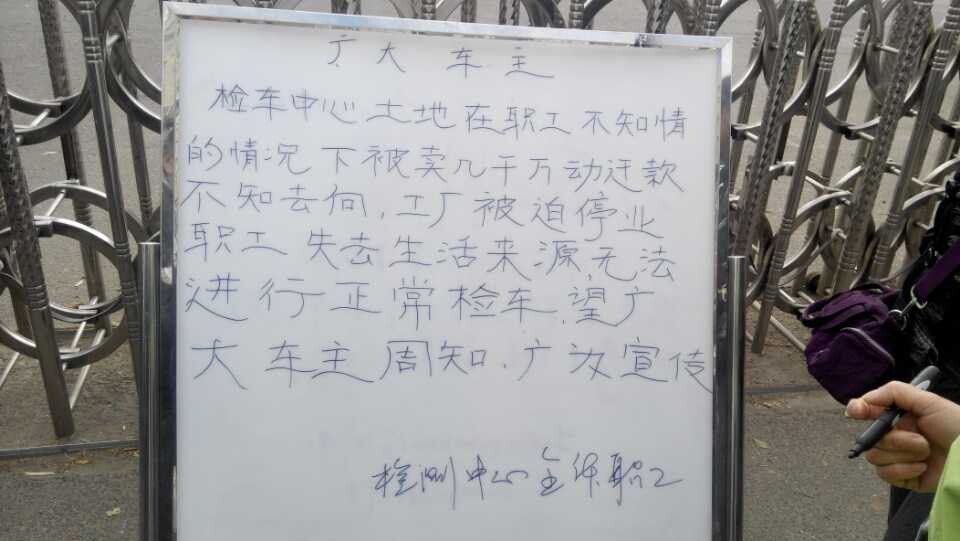 广大车主
检车中心土地在职工不知情
的情况下被卖几千万动迁款
不知去向,工厂被迫停业
职工失去生活来源,无法
进行正常检车,望广
大车主周知,广为宣传
检测中心全体职工